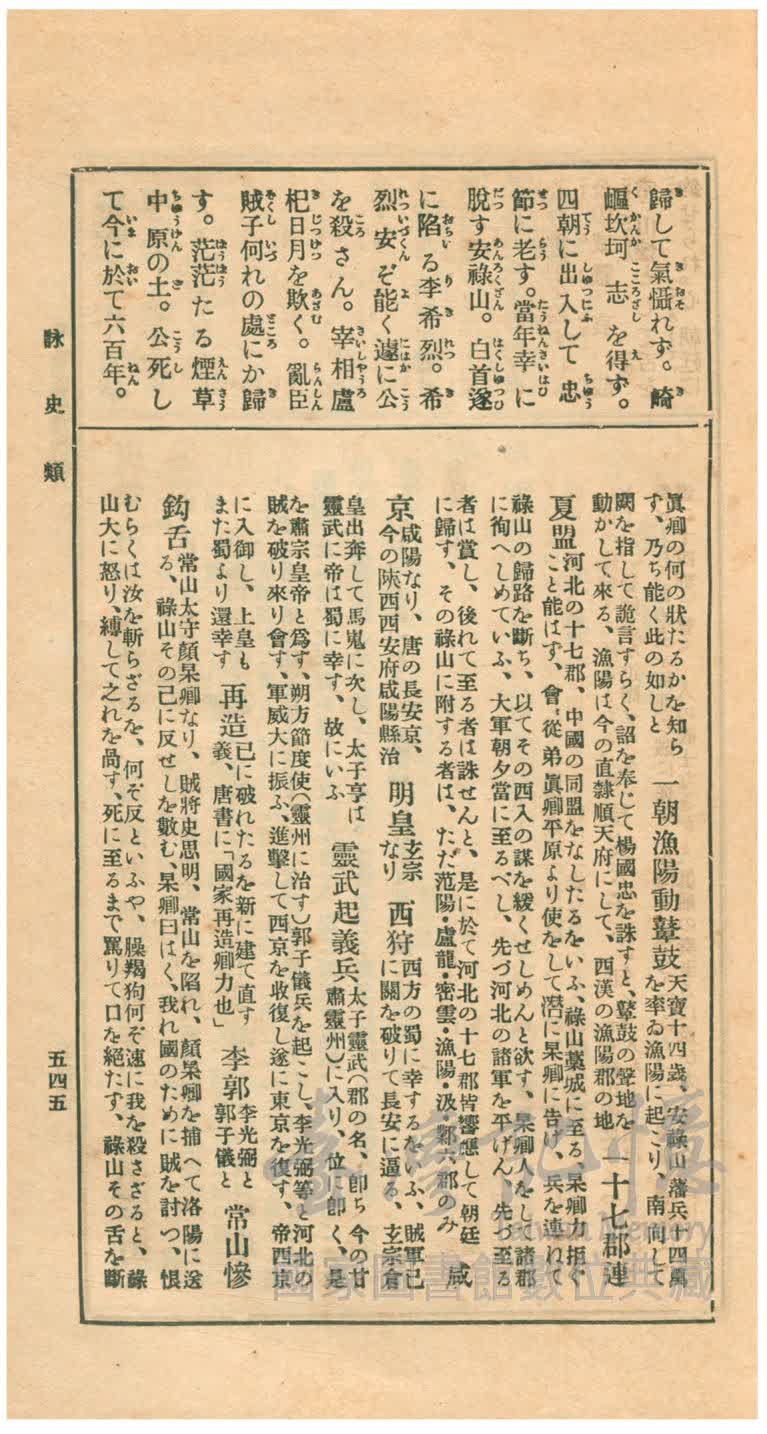 歸して氣懾れず。崎
嶇坎坷志を得ず。
四朝に出入して忠
節に老す。當年幸に
脫す安祿山。白首遂
に陷る李希烈。希
烈安ぞ能く遽に公
を殺さん。宰相盧
杞日月を欺く。亂臣
賊子何れの處にか歸
す。茫茫たる煙草
中原の土。公死し
て今に於て六百年。
眞卿の何の狀たるかを知ら
ず、乃ち能く此の如しと
一朝漁陽動鼙鼓
天寶十四歲、安祿山藩兵十四萬
を率ゐ漁陽に起こり、南向して
闕を指して詭言すらく、詔を奉じて楊國忠を誅すと、鼙鼓の聲地を
動かして來る、漁陽は今の直隸順天府にして、西漢の漁陽郡の地
一十七郡連
夏盟
河北の十七郡、中國の同盟をなしたるをいふ、祿山藁城に至る、杲卿力拒ぐ
こと能はず、會從弟眞卿平原より使をして潛に杲卿に告げ、兵を連れて
祿山の歸路を斷ち、以てその西入の謀を緩くせしめんと欲す、杲卿人をして諸郡
に徇へしめていふ、大軍朝夕當に至るべし、先づ河北の諸軍を平げん、先づ至る
者は賞し、後れて至る者は誅せんと、是に於て河北の十七郡皆響應して朝廷
に歸す、その祿山に附する者は、ただ范陽・盧龍・密雲・漁陽・汲・鄴六郡のみ
咸
京
咸陽なり、唐の長安京、
今の陝西西安府咸陽縣治
明皇
玄宗
なり
西狩
西方の蜀に幸するをいふ、賊軍已
に關を破りて長安に逼る、玄宗倉
皇出奔して馬嵬に次し、太子亨は
靈武に帝は蜀に幸す、故にいふ
靈武起義兵
太子靈武(郡の名、卽ち今の甘
肅靈州)に入り、位に卽く、是
を肅宗皇帝と爲す、朔方節度使(靈州に治す)郭子儀兵を起こし、李光弼等と河北の
賊を破り來り會す、軍威大に振ふ、進擊して西京を收復し遂に東京を復す、帝西京
に入御し、上皇も
また蜀より還幸す
再造
已に破れたるを新に建て直す
義、唐書に「國家再造卿力也」
李郭
李光弼と
郭子儀と
常山慘
鈎舌
常山太守顏杲卿なり、賊將史思明、常山を陷れ、顏杲卿を捕へて洛陽に送
る、祿山その己に反せしを數む、杲卿曰はく、我れ國のために賊を討つ、恨
むらくは汝を斬らざるを、何ぞ反といふや、臊羯狗何ぞ速に我を殺さざると、祿
山大に怒り、縛して之れを咼す、死に至るまで罵りて口を絕たず、祿山その舌を斷
詠史類
五四五
國家圖書館數位典藏